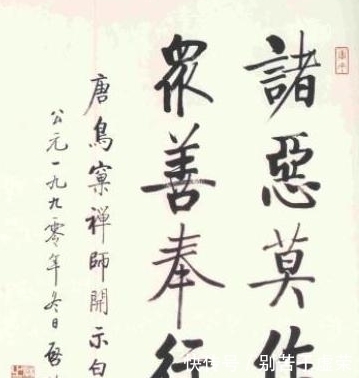 諸惡莫作
眾善奉行
唐鳥窠禪師開示白
公元一九九零年冬日啓